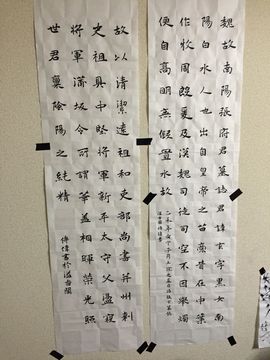 魏故南陽張府君墓誌君諱玄字黑女南
陽白水人也出自皇帝之苗裔昔在中葉
作牧周殷爰及漢魏司徒司空不因舉燭
便自高明無假置水故
乙未年
故以清潔遠祖和吏部尚書并州刺
史祖具中堅將軍新平太守父盪寇
將軍蒲坂令所謂華蓋相暉榮光照
世君稟陰陽之純精
偉書於